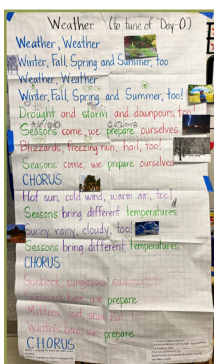 Weather (to tune of "Day-O")
Weather, Weather
Winter, Fall, Spring and Summer, too
Weather, Weather
Winter, Fall, Spring and Summer, too!
Drought and storm and downpours, too!
Seasons come, we prepare ourselves
Blizzards, freezing rain, hail, too!
Seasons come, we prepare ourselves
CHORUS
Hot sun, cold wind, warm air, too!
Seasons bring different temperatures
Sunny, rainy, cloudy, too!
Seasons bring different temperatures
CHORUS
Sunblock, sunglasses, swimsuit,
Summer's here, we prepare
Mittens, coat, snow hat
Winter's here, we prepare
CHORUS